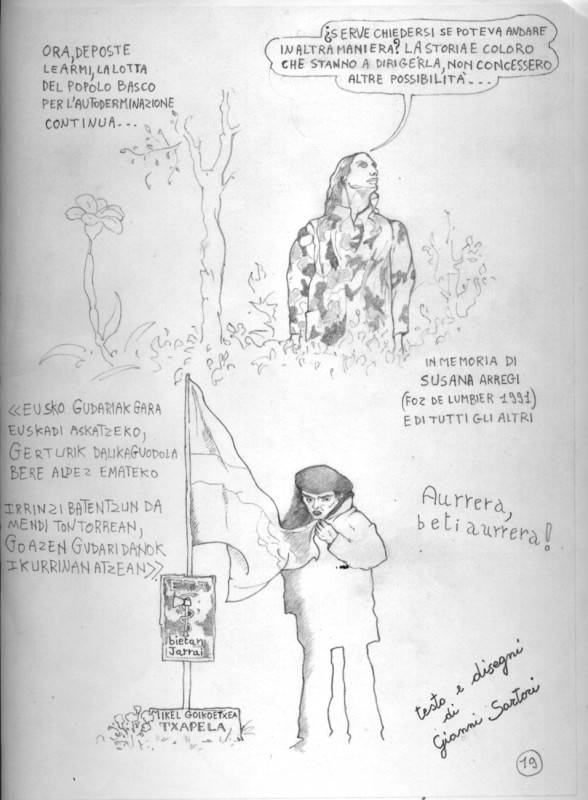 ORA, DEPOSTE
LE ARMI, LA LOTTA
DEL POPOLO BASCO
PER L'AUTODERMINAZIONE
CONTINUA...
¿SERVE CHIEDERSI SE POTEVA ANDARE
IN ALTRA MANIERA? LA STORIA E COLORO
CHE STANNO A DIRIGERLA, NON CONCESSERO
ALTRE POSSIBILITÀ...
IN MEMORIA DI
SUSANA ARREGI
(FOZ DE LUMBIER 1991)
E DI TUTTI GLI ALTRI
«EUSKO GUDARIAK GARA
EUSKADI ASKATZEKO,
GERTURIK DAUKAGUODOLA
BERE ALDEZ EMATEKO
IRRINZI BATENTZUN DA
MENDI TONTORREAN,
GOAZEN GUDARI DANOK
IKURRINAN ATZEAN»
Aurrera,
beti aurrera!
bietan
Jarrai
MIKEL GOIKOETXEA
TXAPELA
testo e disegni
di
Gianni Sartori
19